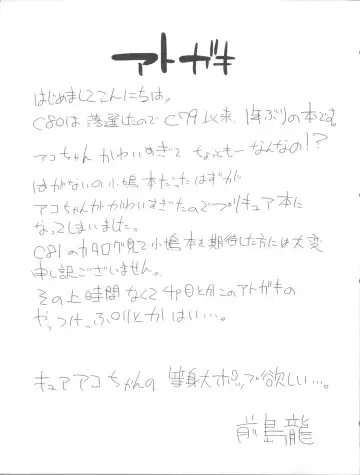 アトガキ
はじめましてこんにちは。
C80は落選したのでC79以来、1年ぶりの本です。
アコちゃんかわいすぎてちょっともーなんなの!?
はがないの小鳩本だったはずが
アコちゃんがかわいすぎたのでプリキュア本に
なってしまいました。
C81のカタログ見て小鳩本を期待した方には大変
申し訳ございません。
その上時間なくて4p目とかこのアトガキの
やっつけっぷりとかはい…。
キュアアコちゃんの等身大ポップ欲しい…。
前島龍